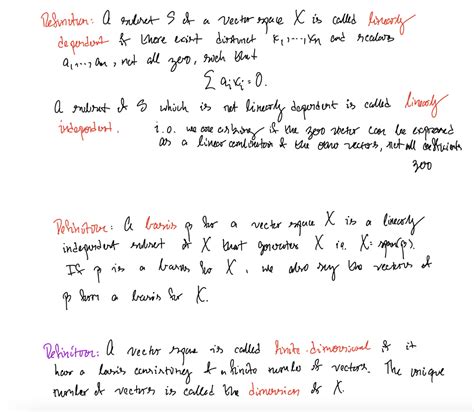 Definition: A subset S of a vector space X is called linearly
dependent if there exist distinct x₁,...,xₙ and scalars
a₁,...,aₙ, not all zero, such that
∑ aᵢxᵢ = 0.
A subset of S which is not linearly dependent is called linearly
independent. i.e. we are asking if the zero vector can be expressed
as a linear combination of the vectors, not all coefficients
zero
Definition: A basis β for a vector space X is a linearly
independent subset of X that generates X i.e. X = span(β).
If β is a basis for X, we also say the vectors of
β form a basis for X.
Definition: A vector space is called finite-dimensional if it
has a basis consisting of a finite number of vectors. The unique
number of vectors is called the dimension of X.